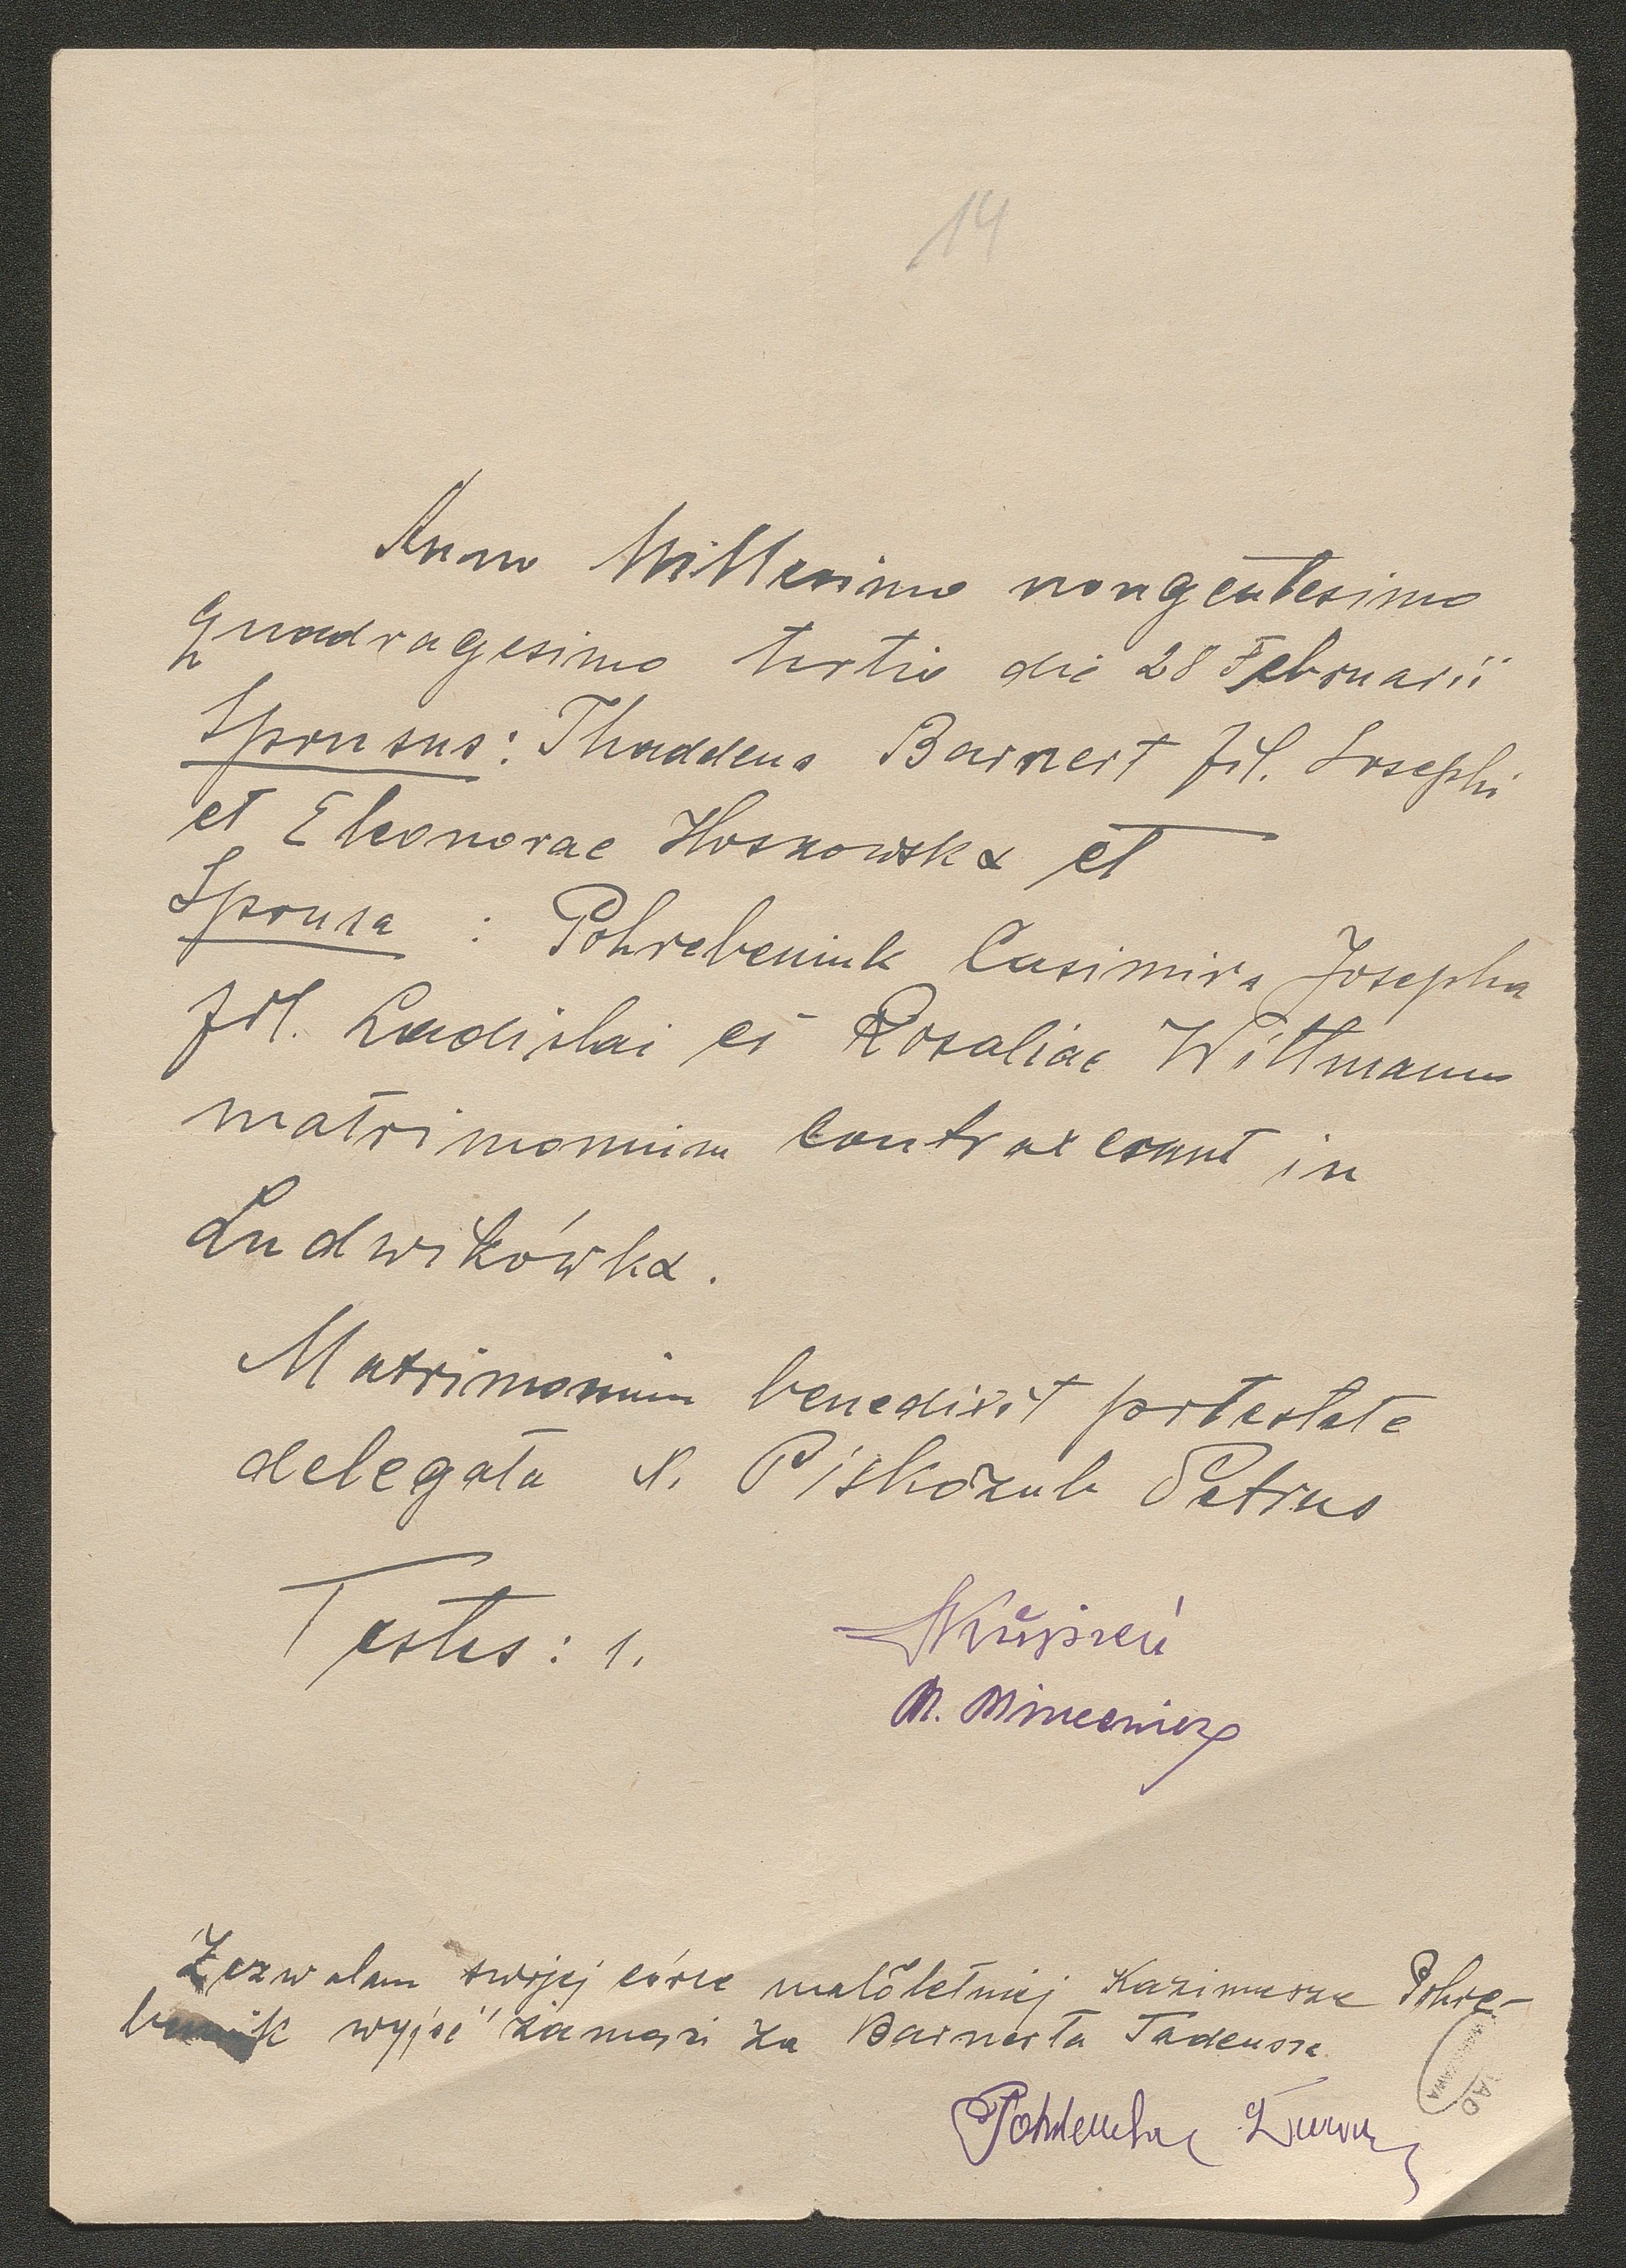 14
Anno Millesimo nongentesimo
quadragesimo tertio die 28 Februarii
Sponsus: Thaddeus Barnert fil. Josephi
et Eleonorae Hosnowska et
Sponsa : Pohrebeniuk Casimira Josepha
fil. Ladislai et Rosaliae Wittmann
matrimonium contraxerunt in
Ludwikówka.
Matrimonium benedixit potestate
delegata X. Piskozub Petrus
Testes: 1.
Zezwalam swojej córce małoletniej Kazimierze Pohre-
beniuk wyjść zamąż za Barnerta Tadeusza